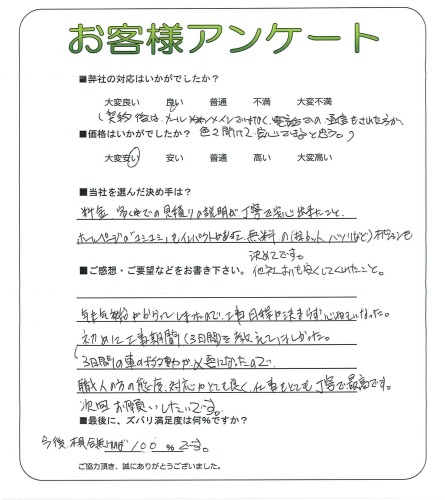 お客様アンケート
■弊社の対応はいかがでしたか?
大変良い 良い 普通 不満 大変不満
(契約後は、メールメインで 電話での 通信をされた方が
■価格はいかがでしたか? 色々聞けて安心できると思う。)
大変安い 安い 普通 高い 大変高い
■当社を選んだ決め手は?
料金 での見積りの説明が丁寧で安心出来たこと、
ホームページの「 」もインパクトが 無料の( など)オプションも
決めてです。
■ご感想・ご要望などをお書き下さい。 他社よりも安くしてくれたこと。
年末年始にかかってしまったので、工事日程が決まらず 心配になった。
初めに工事期間(3日間)を教えてほしかった。
(3日間の車の移動が必要になったので
職人の方の態度、対応がとても良く、仕事もとても丁寧で最高です。
次回お願いしたいです。
■最後に、ズバリ満足度は何%ですか?
今後、不具合無ければ 100 %です。
ご協力頂き、誠にありがとうございました。